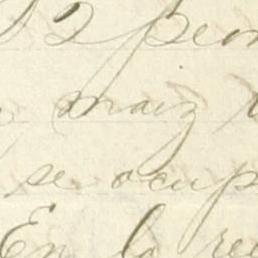 2 peon
maiz
se ocup
En la rec